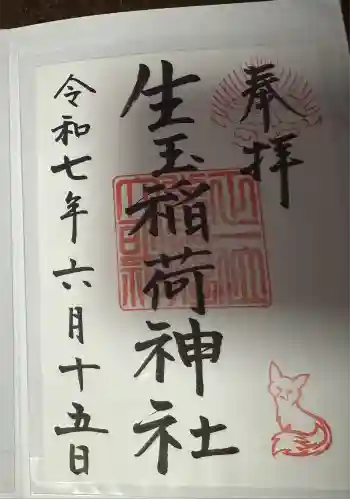 奉拝
生玉稲荷神社
令和七年六月十五日